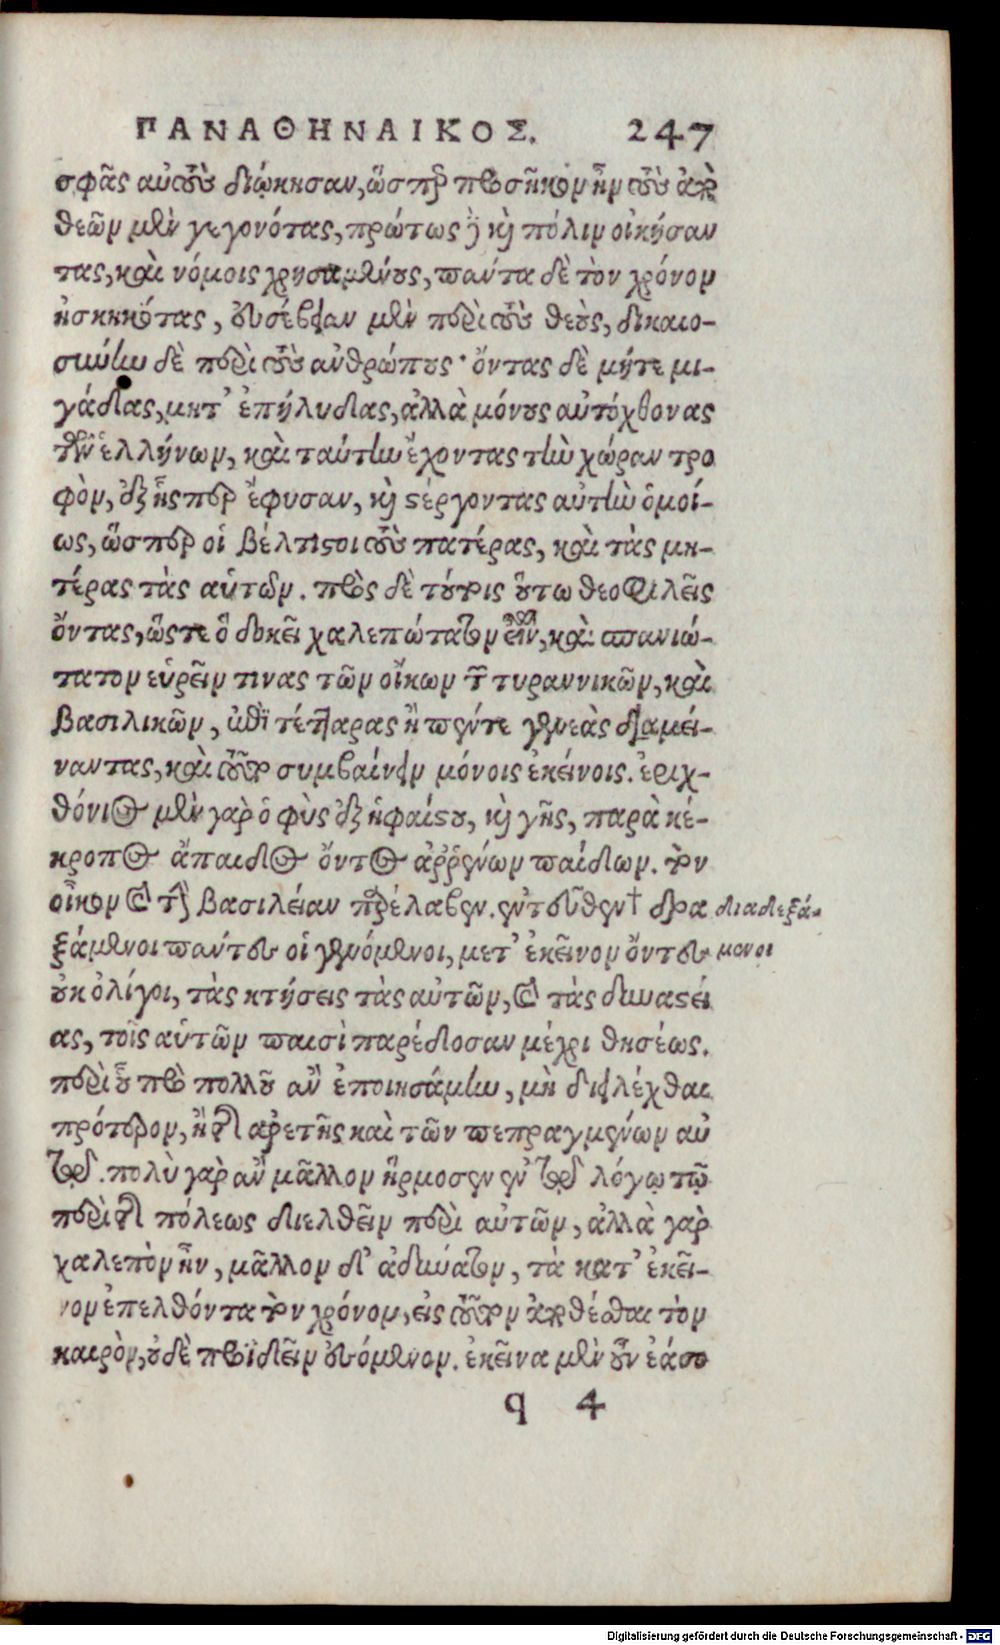 ΠΑΝΑΘΗΝΑΙΚΟΣ. 247
σφᾶς αὐτοὺς διῴκησαν, ὥσπερ προσῆκον ἦν τοὺς ἀπὸ
θεῶν μὲν γεγονότας, πρώτως δὲ καὶ πόλιν οἰκήσαν
τας, καὶ νόμοις χρησαμένους, πάντα δὲ τὸν χρόνον
ἠσκηκότας, εὐσέβειαν μὲν περὶ τοὺς θεοὺς, δικαιο-
σύνην δὲ περὶ τοὺς ἀνθρώπους· ὄντας δὲ μήτε μι-
γάδας, μητ' ἐπήλυδας, ἀλλὰ μόνους αὐτόχθονας
τῶν ἑλλήνων, καὶ ταύτην ἔχοντας τὴν χώραν τρο
φὸν, ἐξ ἧςπερ ἔφυσαν, καὶ στέργοντας αὐτὴν ὁμοί-
ως, ὥσπερ οἱ βέλτιστοι τοὺς πατέρας, καὶ τὰς μη-
τέρας τὰς αὑτῶν. πρὸς δὲ τούτοις οὕτω θεοφιλεῖς
ὄντας, ὥστε ὃ δοκεῖ χαλεπώτατον εἶναι, καὶ σπανιώ-
τατον εὑρεῖν τινας τῶν οἴκων τῶν τυραννικῶν, καὶ
βασιλικῶν, ἐπὶ τέτταρας ἢ πέντε γενεὰς διαμεί-
ναντας, καὶ τοῦτο συμβαίνειν μόνοις ἐκείνοις. ἐριχ-
θόνιος μὲν γὰρ ὁ φὺς ἐξ ἡφαίστου, καὶ γῆς, παρὰ κέ-
κροπος ἄπαιδος ὄντος ἀῤῥένων παίδων. τὸν
οἶκον καὶ τὴν βασιλείαν παρέλαβεν. ἐντεῦθεν † δρα διαδεξά-
ξάμενοι πάντες οἱ γενόμενοι, μετ' ἐκεῖνον ὄντες μενοι
οὐκ ὀλίγοι, τὰς κτήσεις τὰς αὑτῶν, καὶ τὰς δυναστεί
ας, τοῖς αὑτῶν παισὶ παρέδοσαν μέχρι θησέως.
περὶ οὗ πρὸ πολλοῦ ἂν ἐποιησάμην, μὴ διειλέχθαι
πρότερον, περὶ τῆς ἀρετῆς καὶ τῶν πεπραγμένων αὐ
τῷ. πολὺ γὰρ ἂν μᾶλλον ἥρμοσεν ἐν τῷ λόγῳ τῷ
περὶ τῆς πόλεως διελθεῖν περὶ αὐτῶν, ἀλλὰ γὰρ
χαλεπὸν ἦν, μᾶλλον δ' ἀδύνατον, τὰ κατ' ἐκεῖ-
νον ἐπελθόντα τὸν χρόνον, εἰς τοῦτον ἀποθέσθαι τὸν
καιρὸν, ὃν οὐδὲ προϊδεῖν ἐσόμενον. ἐκεῖνα μὲν οὖν ἐάσο
q 4
Digitalisierung gefördert durch die Deutsche Forschungsgemeinschaft - DFG